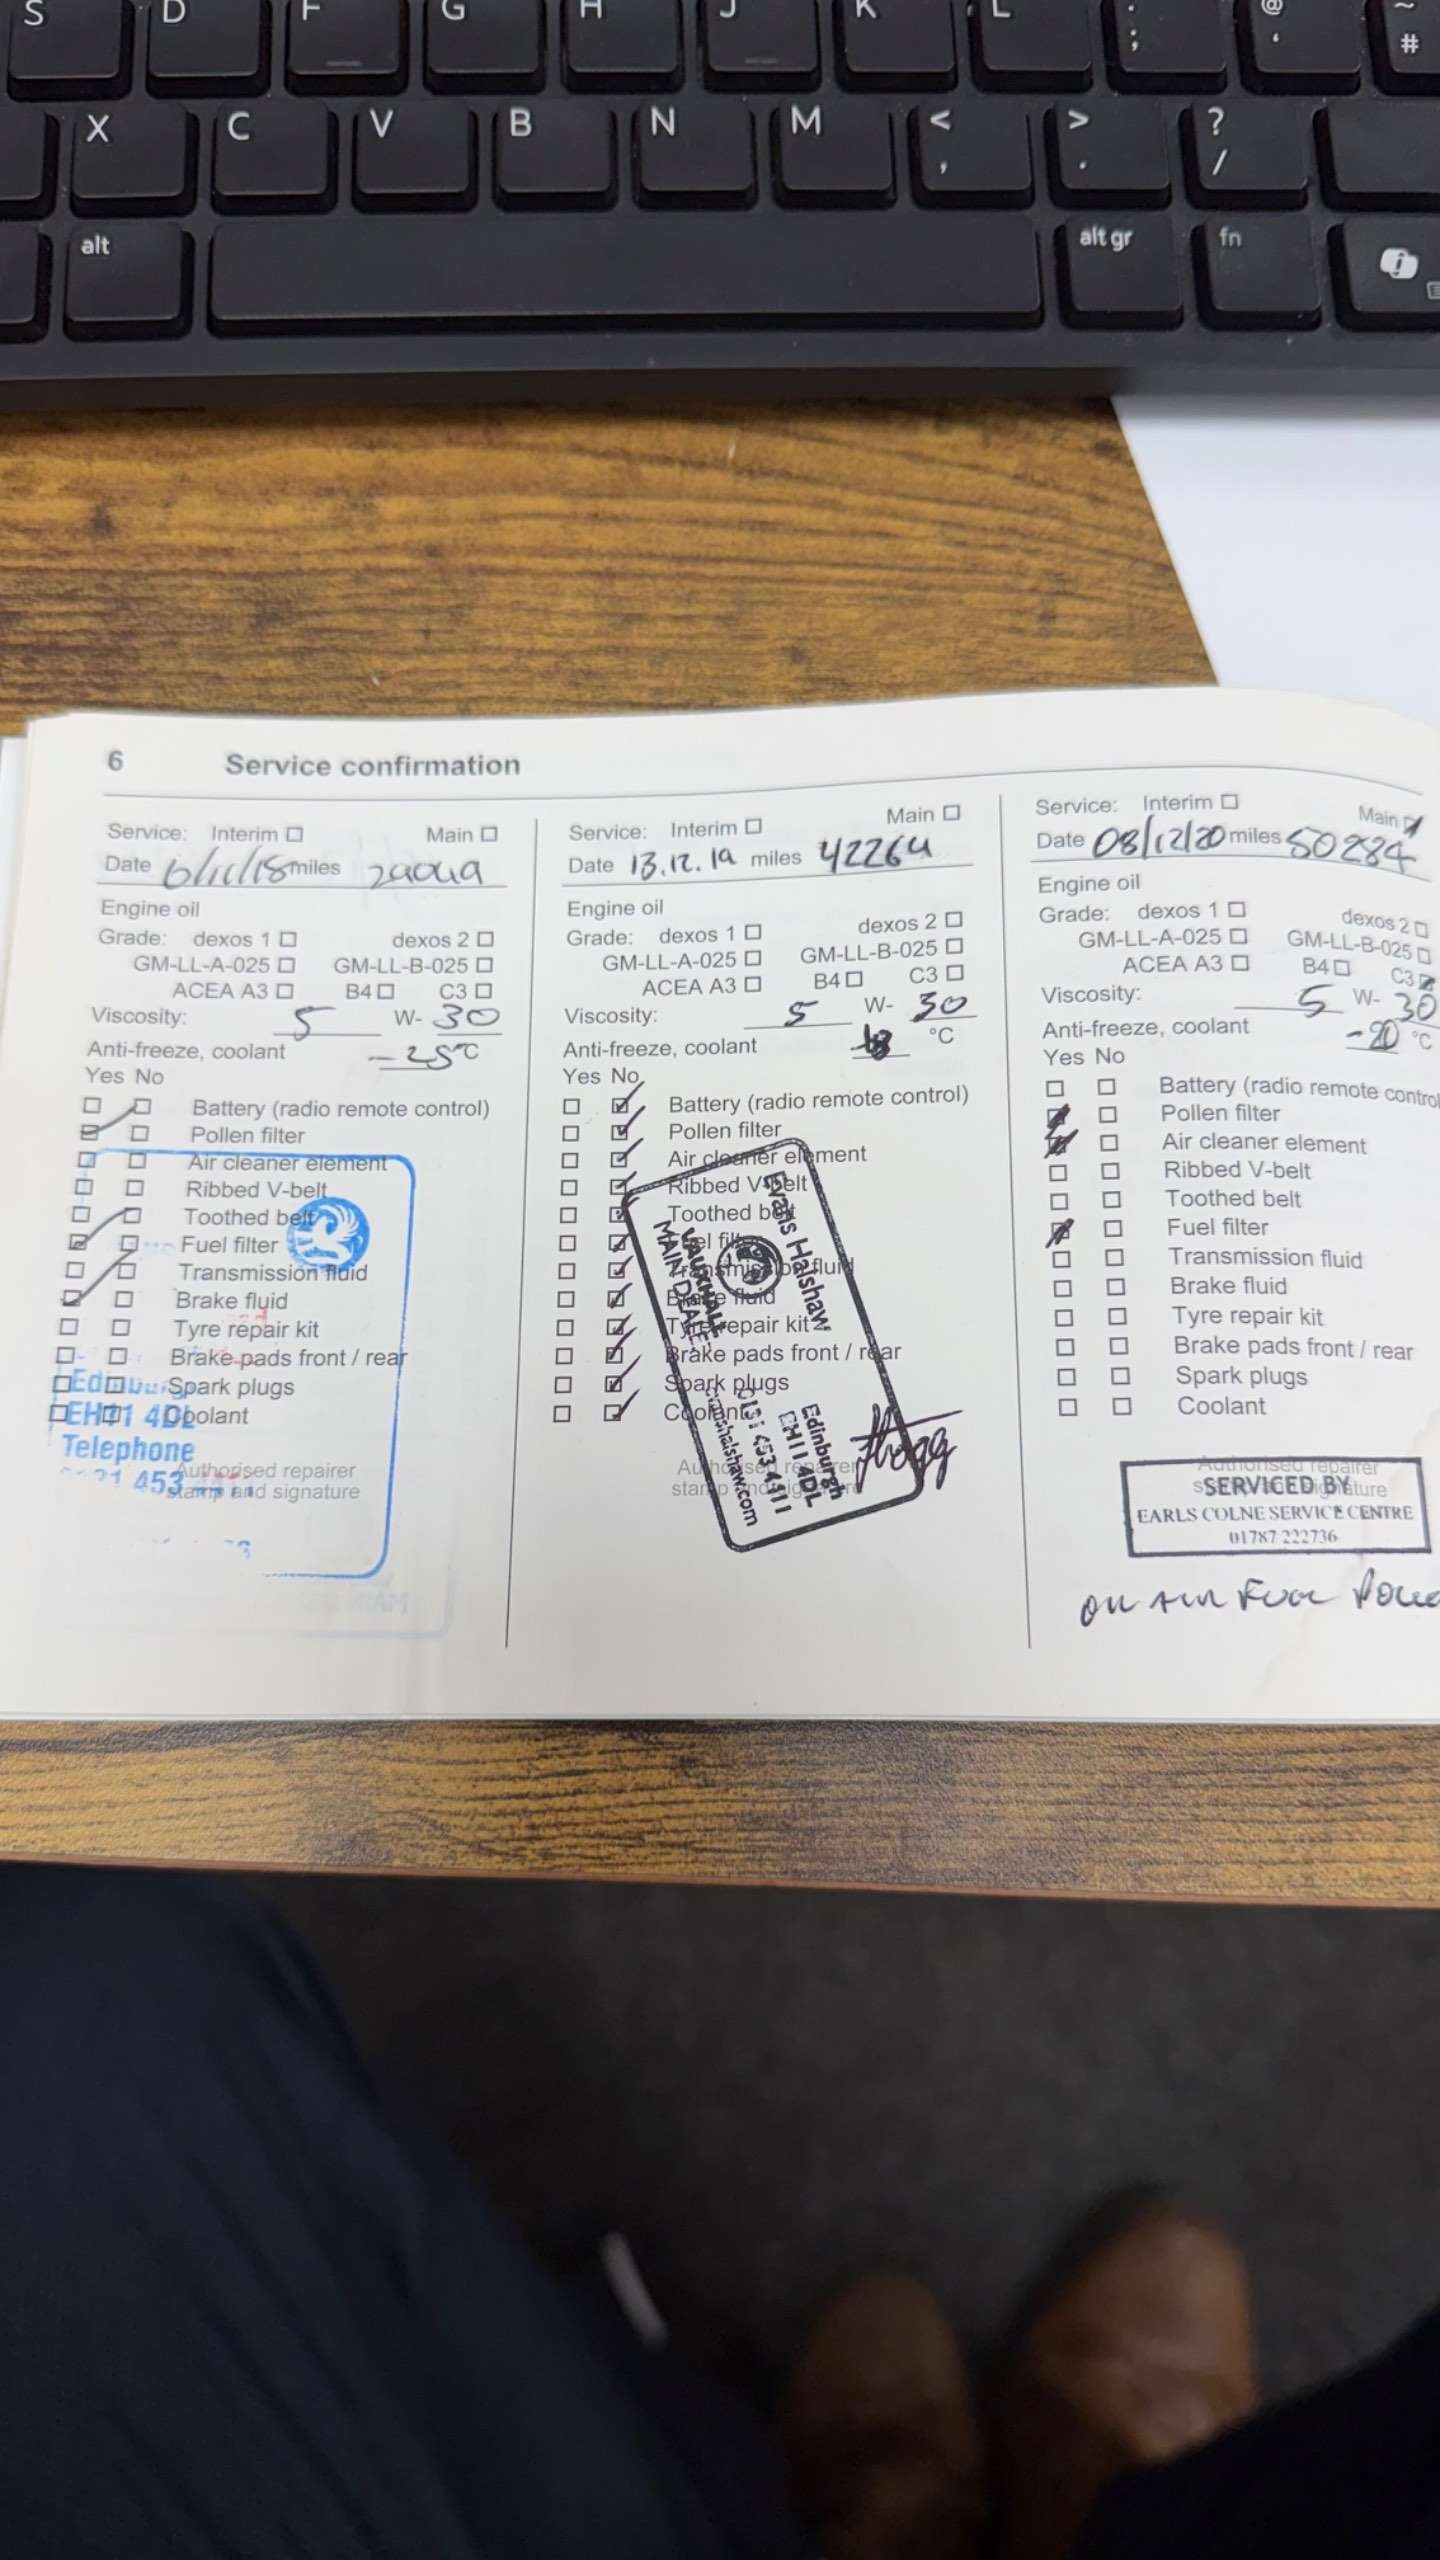 S D F G H J K L : ; @ ' ~ #
X C V B N M < , > . ? /
alt alt gr fn
6 Service confirmation
Service: Interim Main
Date 6/11/18 miles 29049
Engine oil
Grade: dexos 1 dexos 2
GM-LL-A-025 GM-LL-B-025
ACEA A3 B4 C3
Viscosity: 5 W- 30
Anti-freeze, coolant -25 °C
Yes No
Battery (radio remote control)
Pollen filter
Air cleaner element
Ribbed V-belt
Toothed belt
Fuel filter
Transmission fluid
Brake fluid
Tyre repair kit
Brake pads front / rear
Spark plugs
Coolant
Authorised repairer
stamp and signature
Edinburgh
EH11 4DL
Telephone
Service: Interim Main
Date 13.12.19 miles 42264
Engine oil
Grade: dexos 1 dexos 2
GM-LL-A-025 GM-LL-B-025
ACEA A3 B4 C3
Viscosity: 5 W- 30
Anti-freeze, coolant °C
Yes No
Battery (radio remote control)
Pollen filter
Air cleaner element
Ribbed V-belt
Toothed belt
Fuel filter
Transmission fluid
Brake fluid
Tyre repair kit
Brake pads front / rear
Spark plugs
Coolant
Authorised repairer
stamp and signature
Evans Halshaw
VAUXHALL
Edinburgh
EH11 4DL
0131 453 4111
Service: Interim Main
Date 08/12/20 miles 50284
Engine oil
Grade: dexos 1 dexos 2
GM-LL-A-025 GM-LL-B-025
ACEA A3 B4 C3
Viscosity: 5 W- 30
Anti-freeze, coolant -20 °C
Yes No
Battery (radio remote control
Pollen filter
Air cleaner element
Ribbed V-belt
Toothed belt
Fuel filter
Transmission fluid
Brake fluid
Tyre repair kit
Brake pads front / rear
Spark plugs
Coolant
Authorised repairer
SERVICED BY
EARLS COLNE SERVICE CENTRE
01787 222736